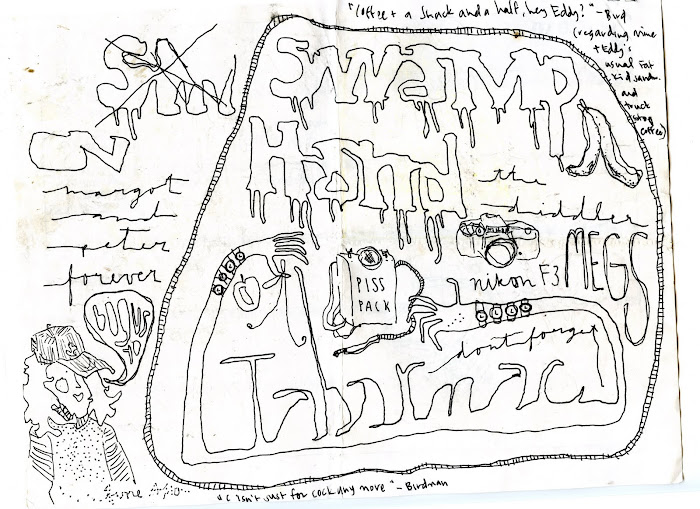 "Coffee + a Shack and a half, hey Eddy?" - Bird
(regarding mine
+ Eddy's
usual Fat
Kid sand.
and
truck
stop
coffee)
Swamp
Hand
the
diddler
margot
and
peter
forever
PISS
PACK
nikon F3
MEGS
dont forget
Tabarnac
"C Isn't just for cock any more" - Birdman